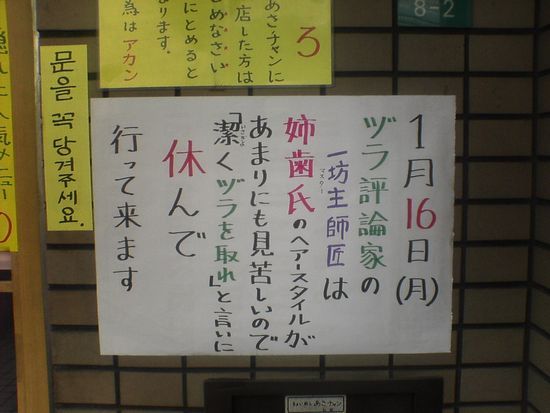 8-2
あさチャンに
店した方は
めなさい
にとめると
なります。
為はアカン
3
문을 꼭 당겨주세요.
1月16日(月)
ヅラ評論家の
一坊主師匠は
マスター
姉歯氏のヘアースタイルが
あまりにも見苦しいので
「潔くヅラを取れ」と言いに
いさぎよ
休んで
行って来ます